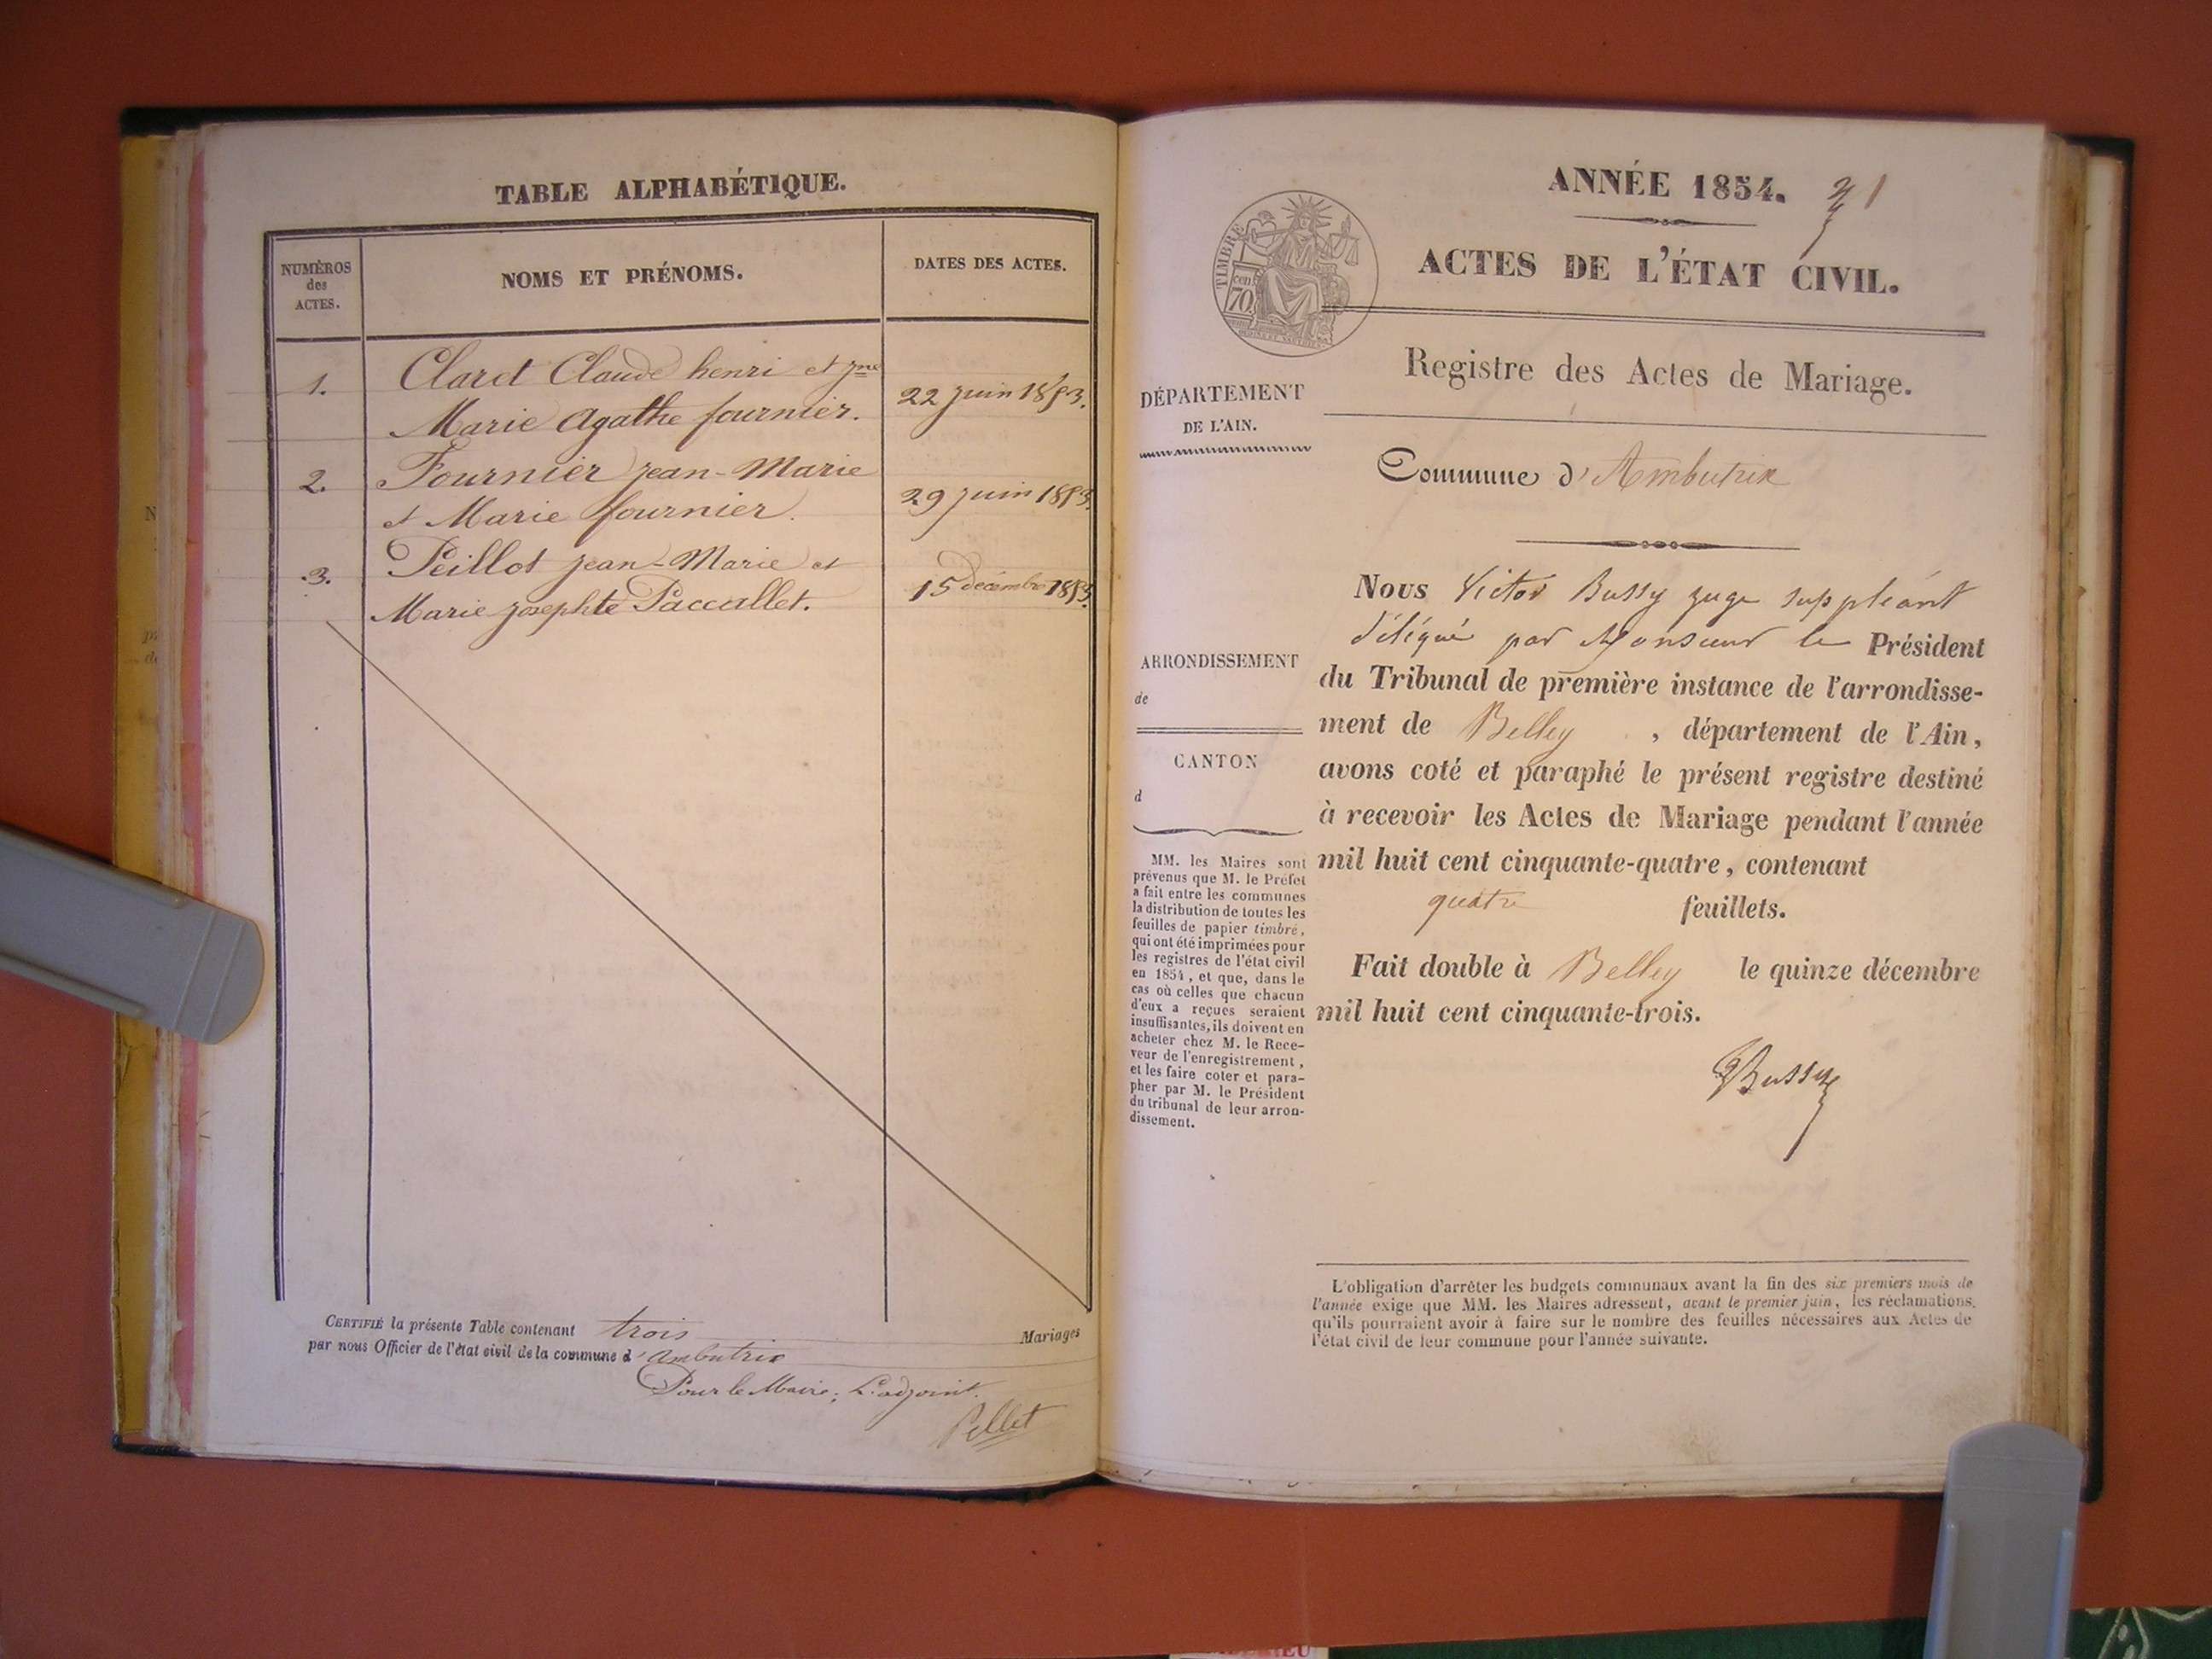 TABLE ALPHABÉTIQUE.
NUMÉROS
des
ACTES.
NOMS ET PRÉNOMS.
DATES DES ACTES.
1.
Claret Claude henri et jne
Marie Agathe fournier.
22 juin 1853.
2.
Fournier jean-Marie
et Marie fournier.
29 juin 1853.
3.
Peillot jean-Marie et
Marie josephte Paccallet.
15 décembre 1853.
CERTIFIÉ la présente Table contenant trois Mariages
par nous Officier de l'état civil de la commune d'Ambutrix
Pour le Maire; L'adjoint.
Pellet
ANNÉE 1854. 1
ACTES DE L'ÉTAT CIVIL.
TIMBRE
cen
70
Registre des Actes de Mariage.
DÉPARTEMENT
DE L'AIN.
Commune d'Ambutrix
ARRONDISSEMENT
de
CANTON
d
MM. les Maires sont
prévenus que M. le Préfet
a fait entre les communes
la distribution de toutes les
feuilles de papier timbré,
qui ont été imprimées pour
les registres de l'état civil
en 1854, et que, dans le
cas où celles que chacun
d'eux a reçues seraient
insuffisantes, ils doivent en
acheter chez M. le Rece-
veur de l'enregistrement,
et les faire coter et para-
pher par M. le Président
du tribunal de leur arron-
dissement.
Nous Victor Bussy juge suppléant
délégué par Monsieur le Président
du Tribunal de première instance de l'arrondisse-
ment de Belley, département de l'Ain,
avons coté et paraphé le présent registre destiné
à recevoir les Actes de Mariage pendant l'année
mil huit cent cinquante-quatre, contenant
quatre feuillets.
Fait double à Belley le quinze décembre
mil huit cent cinquante-trois.
Bussy
L'obligation d'arrêter les budgets communaux avant la fin des six premiers mois de
l'année exige que MM. les Maires adressent, avant le premier juin, les réclamations,
qu'ils pourraient avoir à faire sur le nombre des feuilles nécessaires aux Actes de
l'état civil de leur commune pour l'année suivante.